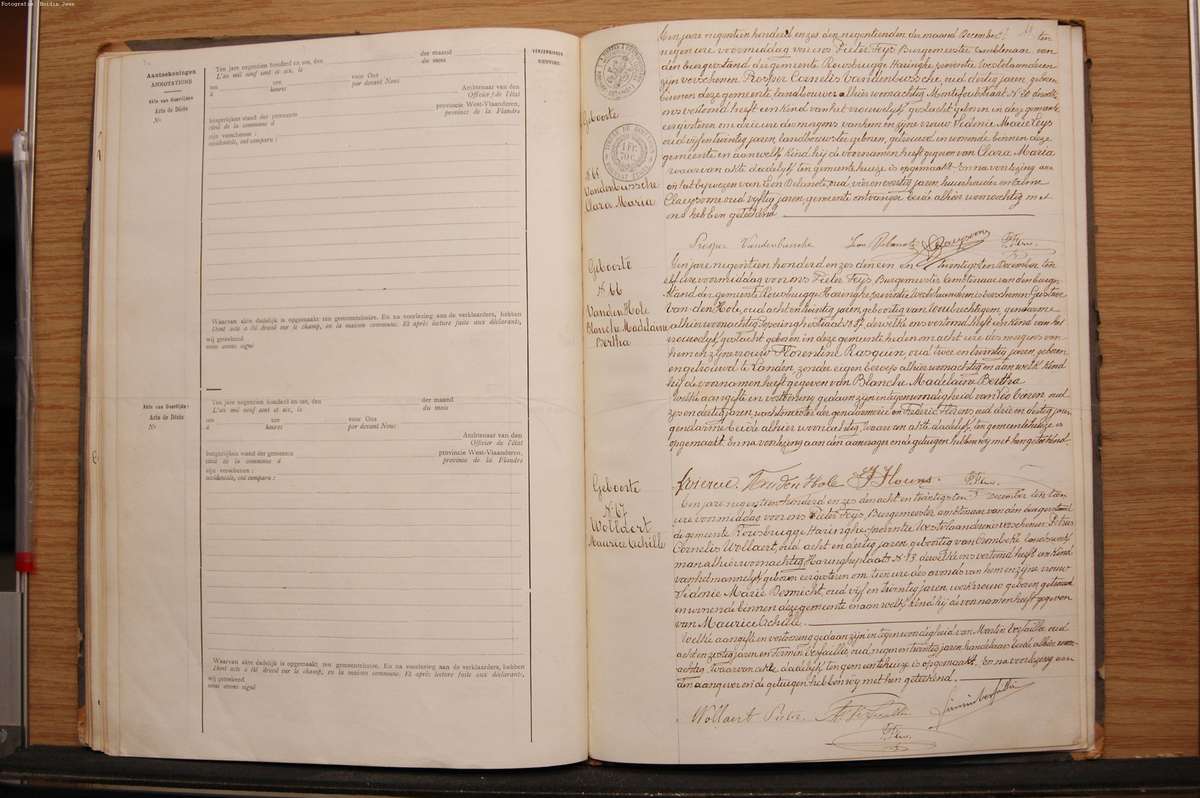 Fotografie: Boidin Jean
Aantseekeningen
ANNOTATIONS
Akte van Overlijden
Acte de Décès
Nr.
Ten jare negentien honderd en zes, den
der maand
L'an mil neuf cent et six, le
du mois
ten
ure
voor Ons
à
heures
par devant Nous
Ambtenaar van den
Officier de l'état
burgerlijken stand der gemeente
provincie West-Vlaanderen,
civil de la commune d
province de la Flandre
zijn verschenen :
occidentale, ont comparu :
Waarvan akte dadelijk is opgemaakt ten gemeentehuize. En na voorlezing aan de verklaarders, hebben
Dont acte a été dressé sur le champ, en la maison commune. Et après lecture faite aux déclarants,
wij geteekend
nous avons signé
Akte van Overlijden :
Acte de Décès
Nr.
Ten jare negentien honderd en zes, den
der maand
L'an mil neuf cent et six, le
du mois
ten
ure
voor Ons
à
heures
par devant Nous
Ambtenaar van den
Officier de l'état
burgerlijken stand der gemeente
provincie West-Vlaanderen,
civil de la commune d
province de la Flandre
zijn verschenen :
occidentale, ont comparu :
Waarvan akte dadelijk is opgemaakt ten gemeentehuize. En na voorlezing aan de verklaarders, hebben
Dont acte a été dressé sur le champ, en la maison commune. Et après lecture faite aux déclarants,
wij geteekend
nous avons signé
Geboorte
N. 65
Vandenbussche
Clara Maria
Een jare negentien honderd en zes den negentienden der maand December ten
negen ure voormiddag voor ons Pieter Feys Burgemeester Ambtenaar van
den burgerstand der gemeente Rousbrugge Haringhe provintie Westvlaanderen
zijn verschenen Prosper Cornelis Vandenbussche, oud dertig jaren, geboren
binnen deze gemeente landbouwer alhier woonachtig
ons vertoond heeft een kind van het vrouwelijk geslacht geboren in deze gemeente
eergisteren om drie ure des morgens van hem en zijne vrouw Sidonie Marie Feys
oud vijf en twintig jaren, landbouwster geboren, getrouwd en wonende binnen deze
gemeente en aan welk kind hij de voornamen heeft gegeven van Clara Maria
waarvan akte dadelijk ten gemeentehuize is opgemaakt. En na voorlezing aan
jaren, huishouder en
Clarysone oud vijftig jaren, gemeente ontvanger beide alhier woonachtig met
ons hebben geteekend
Prosper Vandenbussche
Geboorte
N. 66
Vanden Hole
Blanche Madelaine
Bertha
Een jare negentien honderd en zes den een en twintigsten December ten
elf ure voormiddag voor ons Pieter Feys Burgemeester Ambtenaar van den burger
stand der gemeente Rousbrugge Haringhe provintie Westvlaanderen is verschenen Gustave
van den Hole, oud acht en twintig jaren, geboortig van gendarme
alhier woonachtig dewelke ons vertoond heeft een kind van het
vrouwelijk geslacht geboren in deze gemeente heden om acht ure des morgens van
hem en zijne vrouw Florentine oud twee en twintig jaren, geboren
en getrouwd te Landen zonder eigen beroep alhier woonachtig en aan welk kind
hij de voornamen heeft gegeven van Blanche Madelaine Bertha
Welke aangifte en vertooning gedaan zijn in tegenwoordigheid van Leo oud
zes en dertig jaren, wachtmeester der gendarmerie en oud drie en dertig jaren
gendarme beide alhier woonachtig, waarvan akte dadelijk ten gemeentehuize is
opgemaakt. En na voorlezing aan den aangever en de getuigen hebben wij met hen geteekend.
Geboorte
N. 67
Wollaert
Maurice Achille
Een jare negentien honderd en zes den acht en twintigsten December ten tien
ure voormiddag voor ons Pieter Feys, Burgemeester ambtenaar van den burgerstand
de gemeente Rousbrugge Haringhe provintie Westvlaanderen is verschenen Petrus
Cornelis Wollaert, oud acht en dertig jaren, geboortig van Crombeke
man alhier woonachtig Haringheplaats N. 13 dewelke ons vertoond heeft een kind
van het mannelijk geboren eergisteren om tien ure des avonds van hem en zijne vrouw
Sidonie Marie Desmecht, oud vijf en twintig jaren, werkvrouw geboren getrouwd
en wonende binnen deze gemeente en aan welk kind hij de voornamen heeft gegeven
van Maurice Achille.
Welke aangifte en vertooning gedaan zijn in tegenwoordigheid van Martin Verfaillie oud
acht en zestig jaren en Firmin Verfaillie oud negen en twintig jaren, handelaars beide alhier woon
achtig, waarvan akte dadelijk ten gemeentehuize is opgemaakt. En na voorlezing aan
den aangever en de getuigen hebben wij met hen geteekend.
Wollaert Pieter